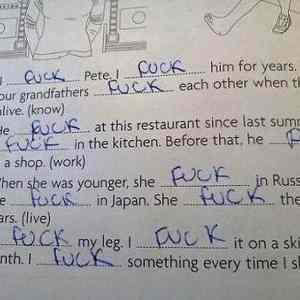 I FUCK Pete. I FUCK him for years.
our grandfathers FUCK each other when th
alive. (know)
He FUCK at this restaurant since last summ
FUCK in the kitchen. Before that, he
a shop. (work)
When she was younger, she FUCK in Russ
e FUCK in Japan. She FUCK the
ars. (live)
FUCK my leg. I FUCK it on a ski
nth. I FUCK something every time I sk